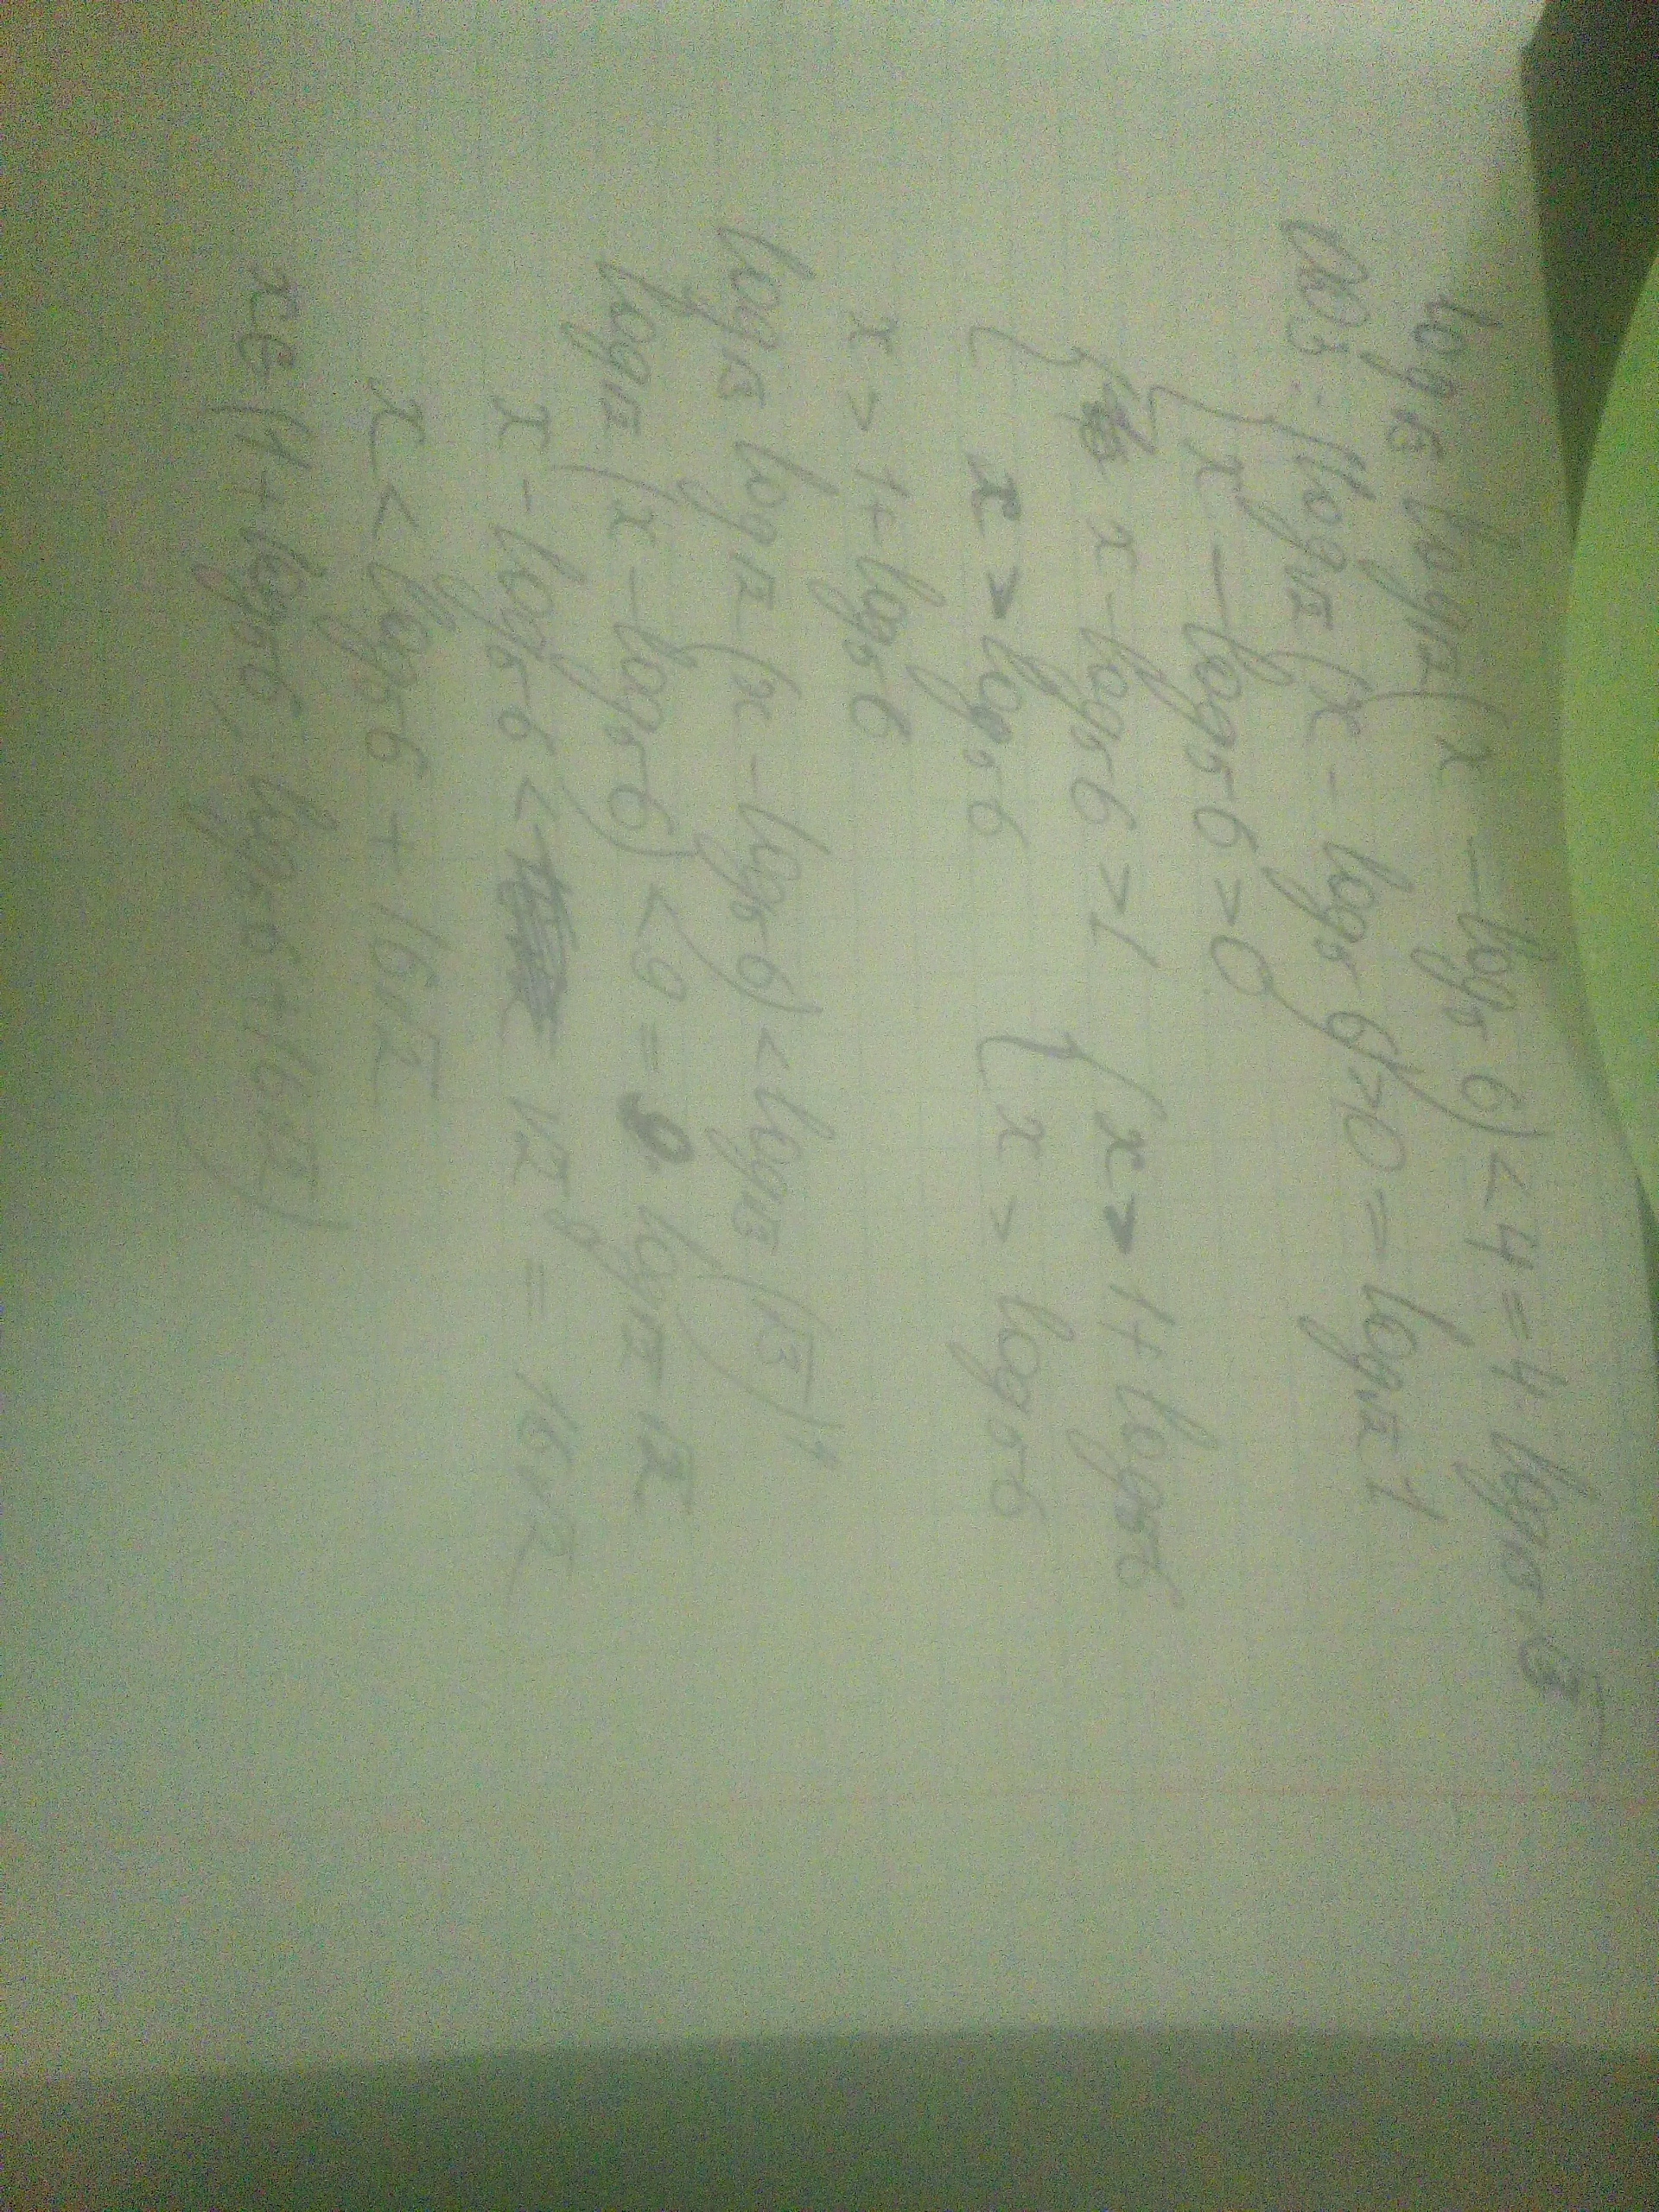 log√3 log√2 (x - log₅ 6) < 4 = 4 log√3 √3
ОДЗ: { log√2 (x - log₅ 6) > 0 = log√2 1
x - log₅ 6 > 0
{ x - log₅ 6 > 1 { x > 1 + log₅ 6
x > log₅ 6 x > log₅ 6
x > 1 + log₅ 6
log√3 log√2 (x - log₅ 6) < log√3 (√3)⁴
log√2 (x - log₅ 6) < 9 = 9 log√2 √2
x - log₅ 6 < √2⁹ = 16√2
x < log₅ 6 + 16√2
x ∈ (1 + log₅ 6; log₅ 6 + 16√2)